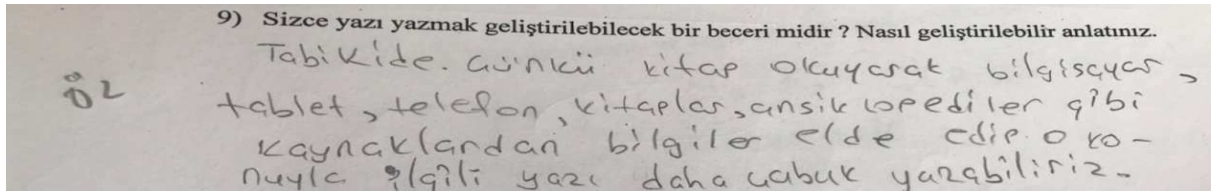 9) Sizce yazı yazmak geliştirilebilecek bir beceri midir ? Nasıl geliştirilebilir anlatınız.
Tabikide. Günkü kitap okuyarak bilgisayar,
tablet, telefon, kitaplar, ansiklopediler gibi
kaynaklardan bilgiler elde edip o ko-
nuyla ilgili yazı daha çabuk yazabiliriz.